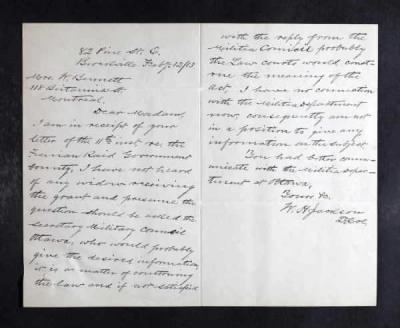 82 Pine St. E.
Brockville Feby 12/13
Mrs. W. Bennett
118 Britannia St
Montreal.
Dear Madam,
I am in receipt of your
letter of the 11th inst. re. the
Fenian Raid Government
bounty, I have not heard
of any widow receiving
the grant and presume the
question should be asked the
Secretary Military Council
Ottawa, who would probably
give the desired information,
it is a matter of construing
the law and if not satisfied
with the reply from the
Militia Council probably
the Law courts would const-
rue the meaning of the
act, I have no connection
with the Militia Department
now, consequently am not
in a position to give any
information on the subject
You had better commu-
nicate with the Militia Depar-
tment at Ottawa,
Yours &c.
W. H. Jackson